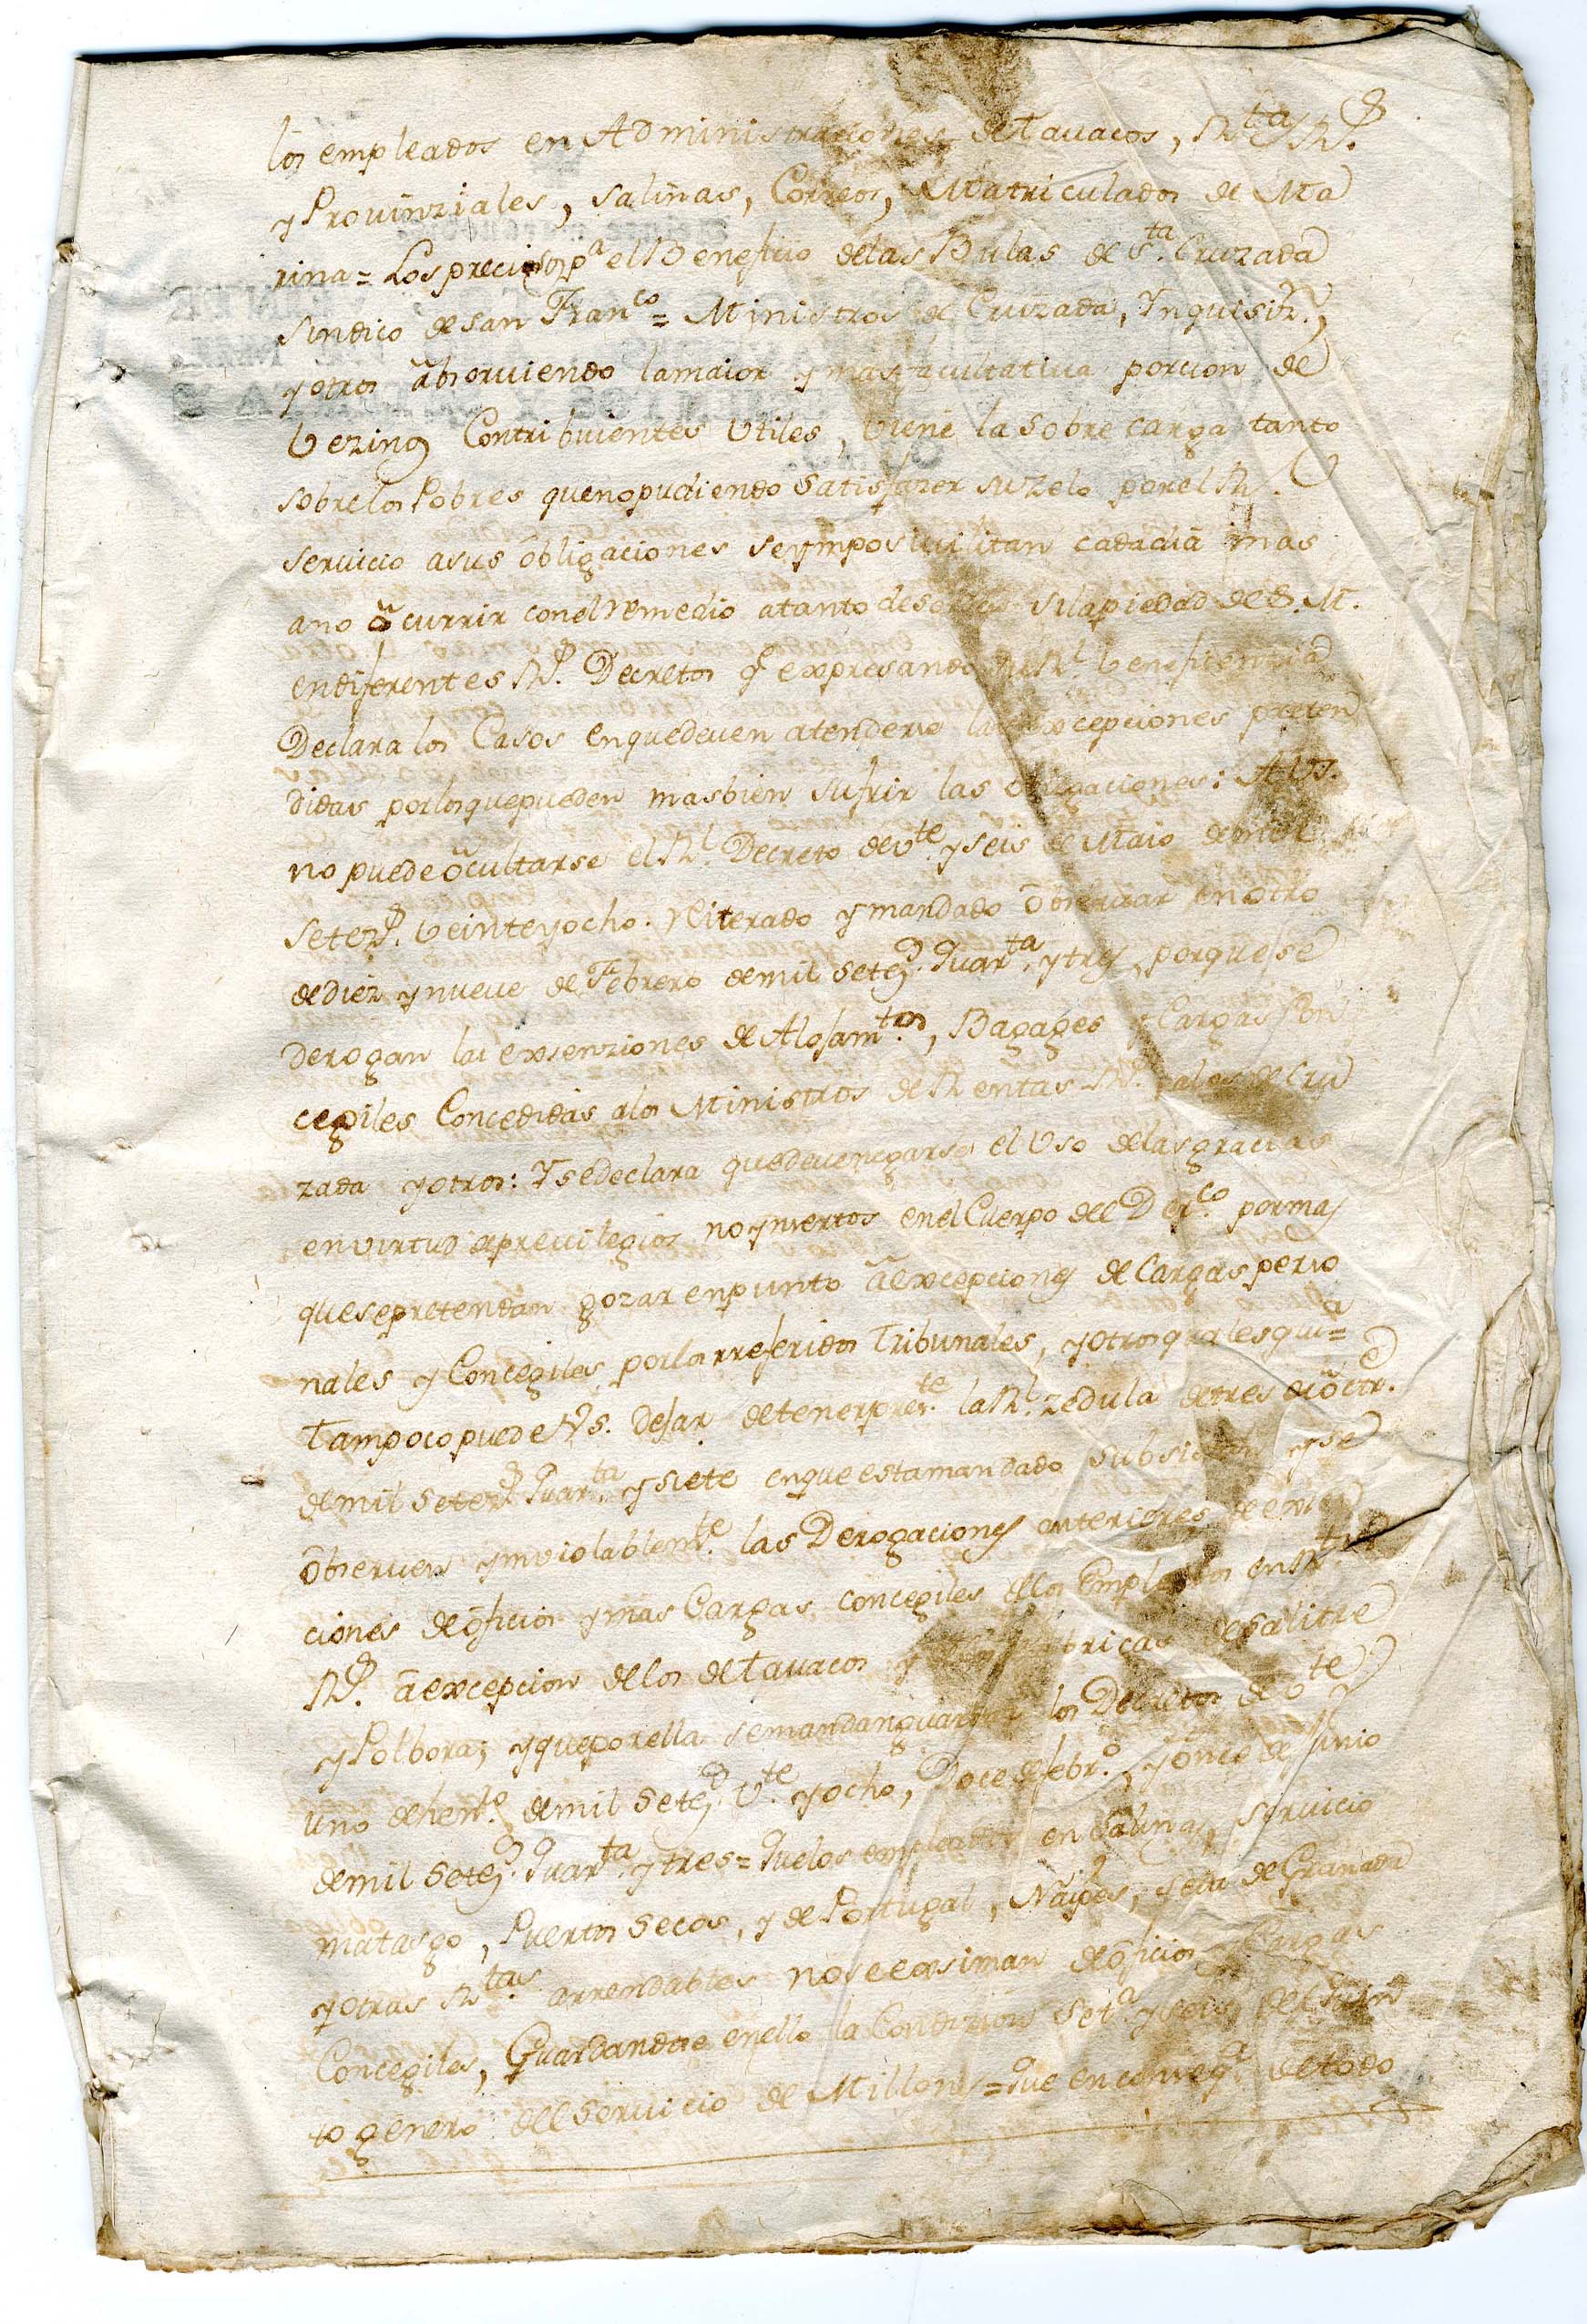 los empleados en Administraciones de Tauacos, R.tas R.s
y Provinziales, Salinas, Correos, Matriculados de Ma
rina = Los precisos p.a el Beneficio delas Bulas de S.ta Cruzada
sindico de san Fran.co = Ministros de Cruzada, Ynquisiz.n,
y otros absorviendo lamaior y mas facultativa porcion de
Vezinos Contribuientes Utiles, viene la sobre carga tanto
sobrelos Pobres quenopudiendo Satisfazer suzelo porel R.l
servicio asus obligaciones seymposiuilitan cadadia mas
ano ocurrir conel remedio atanto desorden la piedad de S. M.
endiferentes R.s Decretos q.e expresando su R.l beneficenzia
Declara los Casos enquedeuen atenderse las excepciones preten
didas porlosquepueden masbien sufrir las obligaciones: A VS.
no puede ocultarse el R.l Decreto de v.te y seis de Maio demil
setez.s veinteyocho. reiterado y mandado observar en otro
dediez y nueve de Febrero demil setez.s quar.ta y tres, porque se
derogan las exsenziones de Alojam.tos, Bagages y Cargas Con
cegiles Concedidas alos Ministros de Rentas R.s alos de Cru
zada y otros: Y sedeclara quedeuenegarse el Uso delasgracias
envirtud de preuilegios noynsertos enel Cuerpo del Der.co pormas
quesepretendan gozar enpunto a excepciones de Cargas perso
nales y Concegiles porlos rreferidos Tribunales, y otros qualesqui.a =
Tampoco puede VS. dejar detenerpres.te la R.l zedula detres de octr.e
demil setez.s quar.ta y siete enqueestamandado subsistan y se
observen ynviolablem.te las Derogaciones anteriores de exsen
ciones de oficios y mas Cargas concegiles delos Empleados en R.tas
R.s a excepcion delos deTauacos y fabricas desalitre
y Polbora; y queporella semandanguardar los Decretos de v.te
uno dehen.o demil setez.s v.te y ocho, Doce defebr.o y once de junio
demil setez.s quar.ta y tres = Quelos empleados en Salinas, servicio
matasgo, Puertos Secos, y de Portugal, Naipes, y seda de Granada
y otras R.tas arrendables noseexsiman deoficios y Cargas
Concegiles, Guardandose enello la Condizion set.a y seis del quin
to genero del servicio de Millones = Que enconseq.a detodo